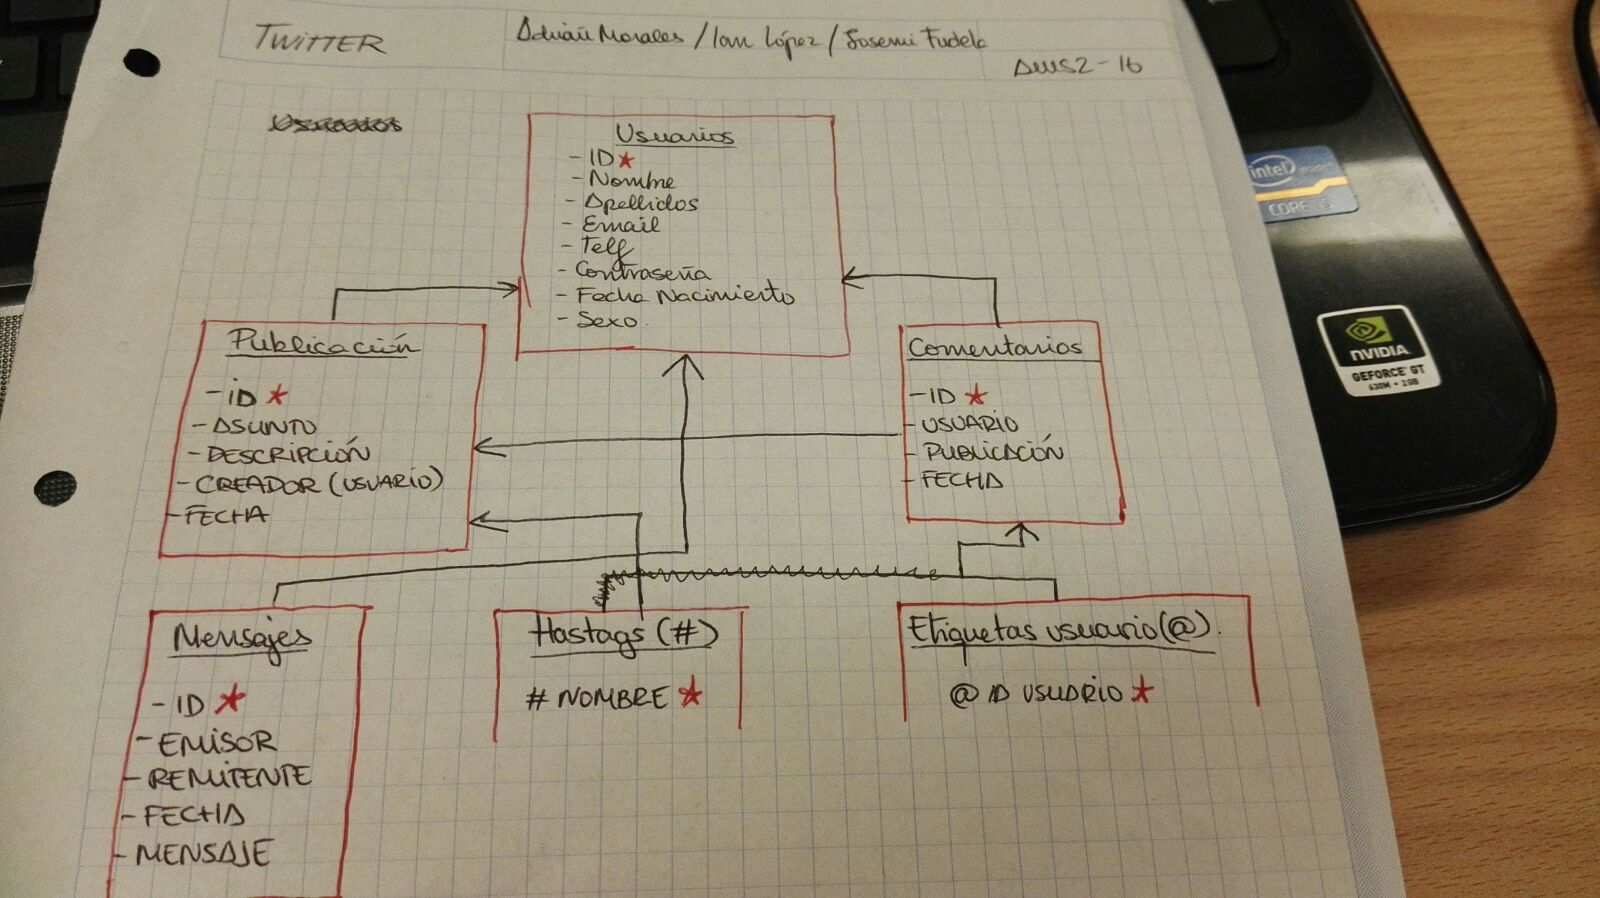 TWITTER
Adrián Morales / Ian López / Josemi Tudela
DWS2-16
Usuarios
- ID ★
- Nombre
- Apellidos
- Email
- Telf
- Contraseña
- Fecha Nacimiento
- Sexo.
Publicación
- ID ★
- ASUNTO
- DESCRIPCIÓN
- CREADOR (USUARIO)
- FECHA
Comentarios
- ID ★
- USUARIO
- PUBLICACIÓN
- FECHA
Mensajes
- ID ★
- EMISOR
- REMITENTE
- FECHA
- MENSAJE
Hastags (#)
# NOMBRE ★
Etiquetas usuario(@).
@ ID USUARIO ★
intel
inside
CORE i5
NVIDIA
GEFORCE GT
630M • 2GB